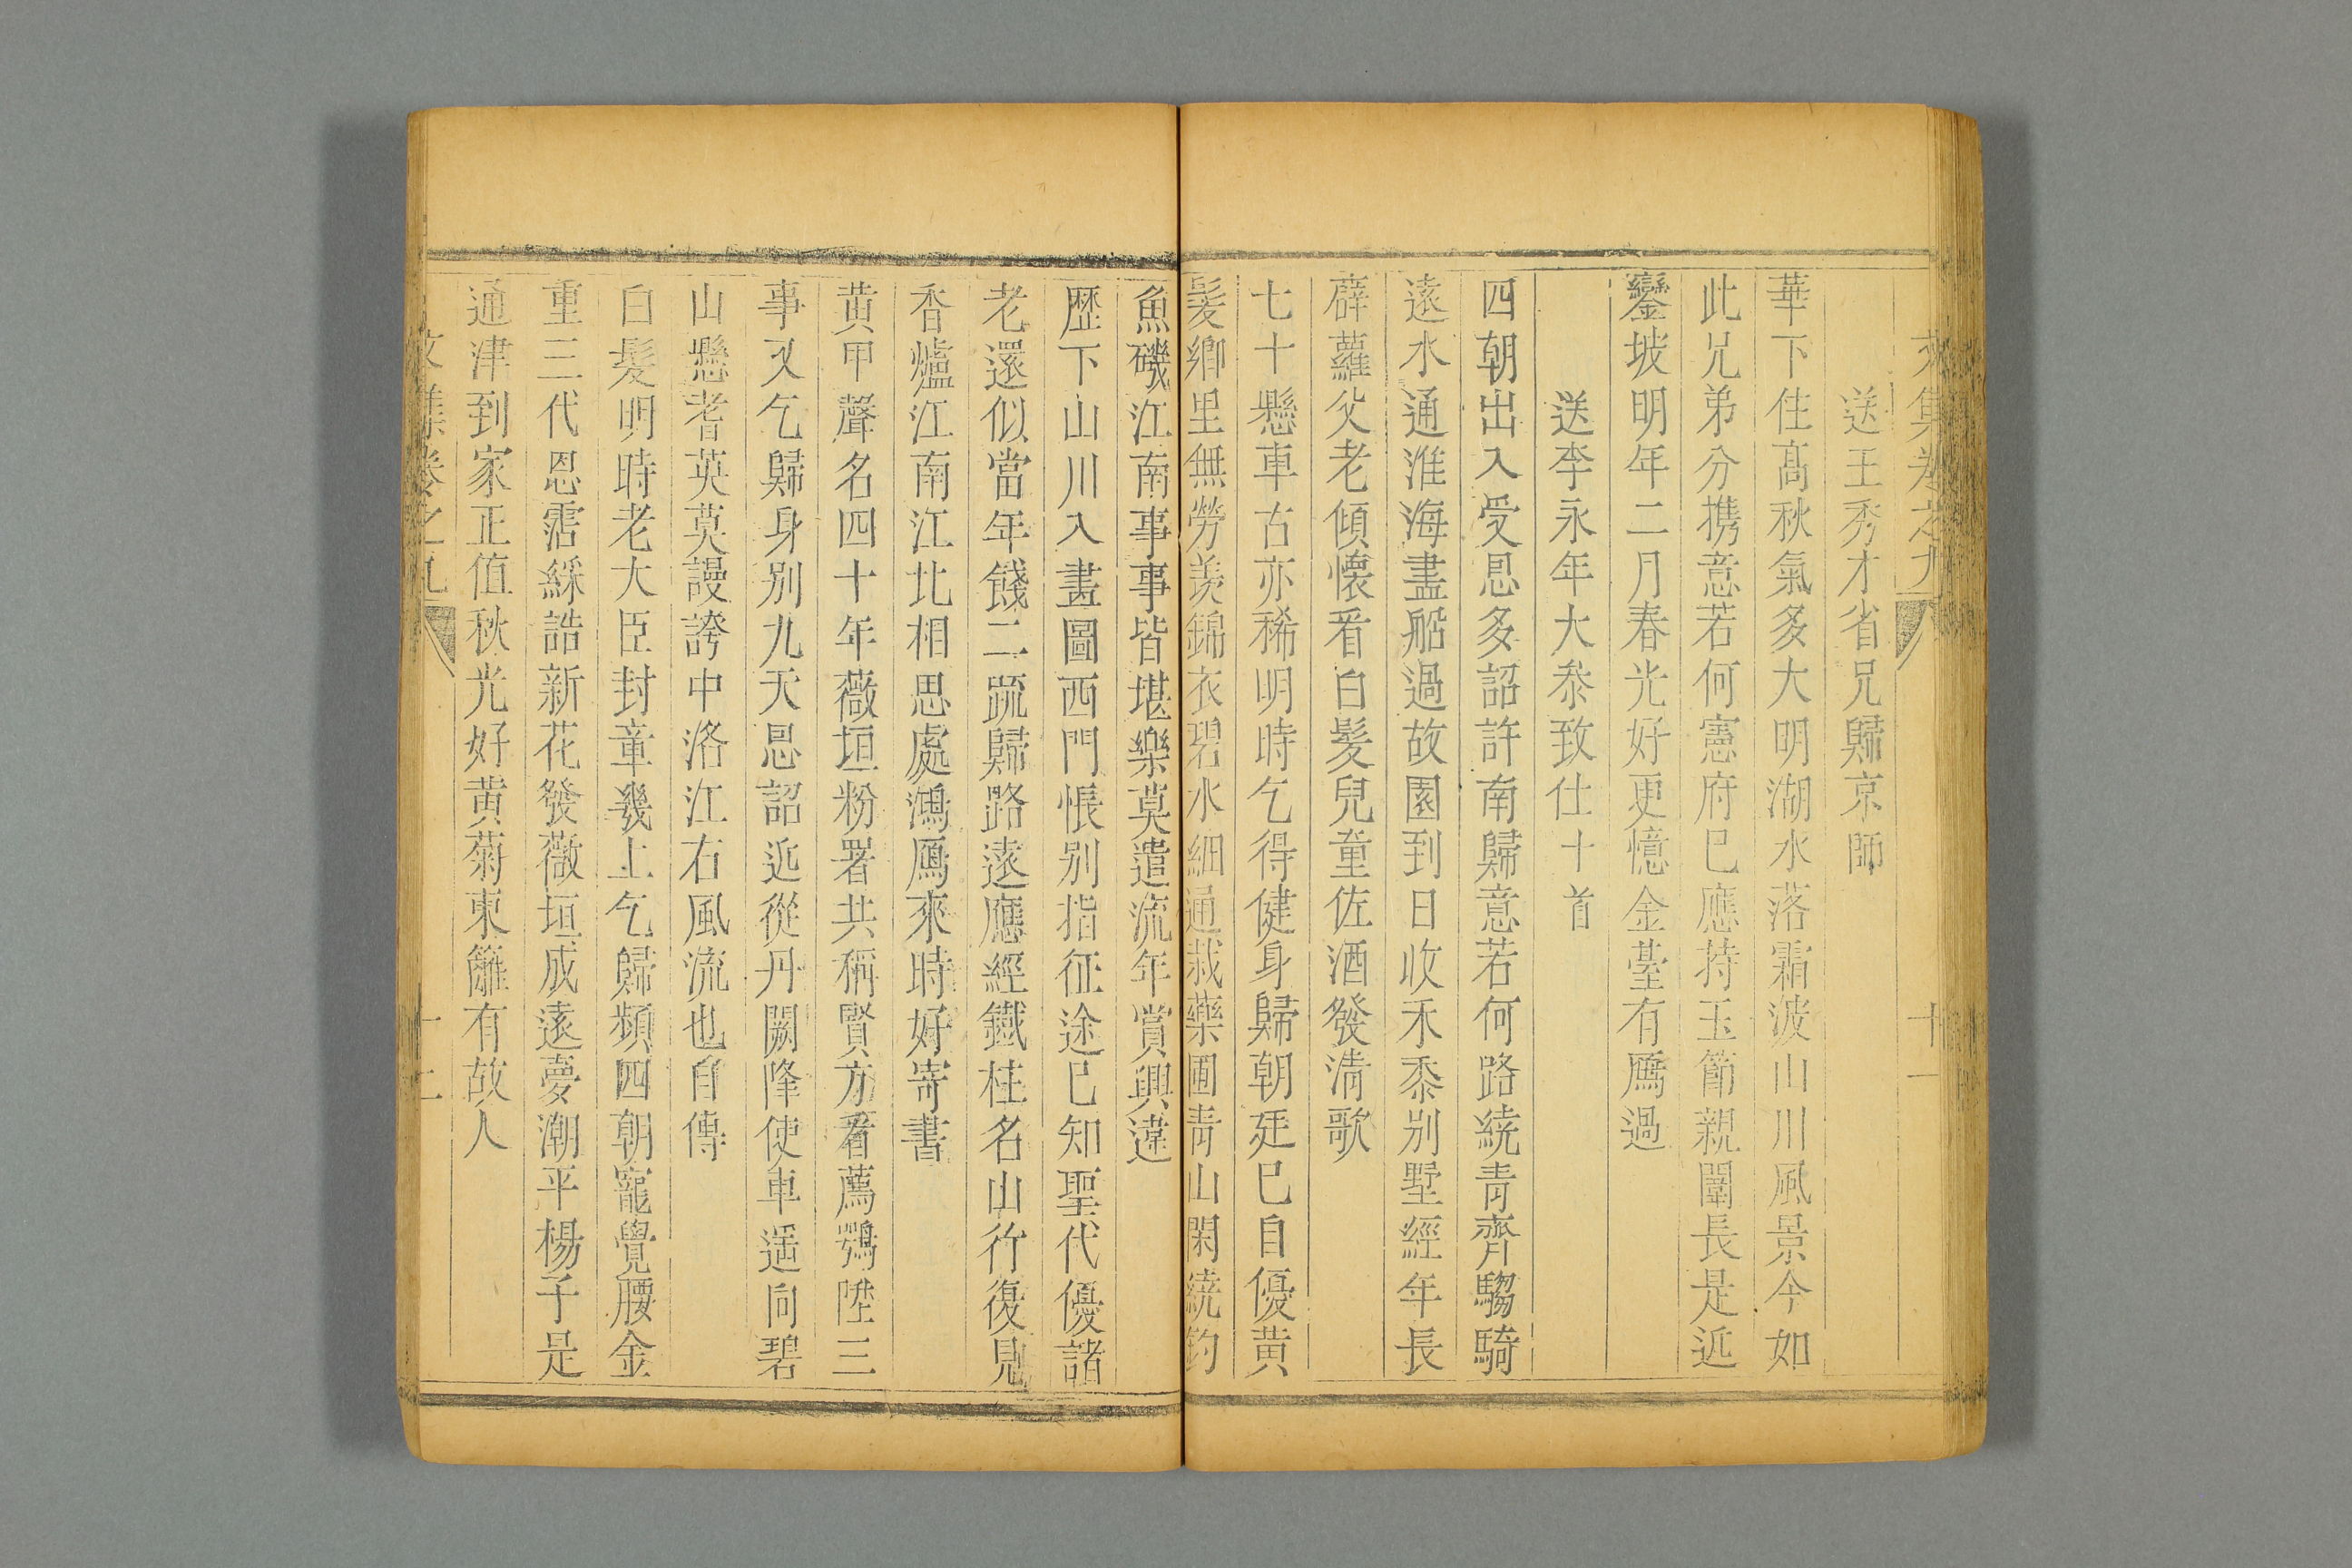 文集卷之九
十一
送王秀才省兄歸京師
華下住高秋氣多大明湖水落霜波山川風景今如
此兄弟分携意若何憲府已應持玉節親闈長是近
鑾坡明年二月春光好更憶金臺有鴈過
送李永年大叅致仕十首
四朝出入受恩多詔許南歸意若何路繞青齊騶騎
遠水通淮海畫船過故園到日收禾黍別墅經年長
薜蘿父老傾懷看白髮兒童佐酒發清歌
七十懸車古亦稀明時乞得健身歸朝廷已自優黄
髮鄉里無勞羨錦衣碧水細通栽藥圃青山閑繞釣
魚磯江南事事皆堪樂莫遣流年賞興違
歷下山川入畫圖西門悵别指征途已知聖代優諸
老還似當年餞二䟽歸路遠應經鐵柱名山行復見
香爐江南江北相思處鴻鴈來時好寄書
黄甲聲名四十年薇垣粉署共稱賢方看薦鶚陞三
事又乞歸身别九天恩詔近從丹闕降使車遥向碧
山懸耆英莫謾誇中洛江右風流也自傳
白髮明時老大臣封章㡬上乞歸頻四朝寵覺腰金
重三代恩霑綵誥新花發薇垣成遠夢潮平楊子是
通津到家正值秋光好黄菊東籬有故人
文集卷之九
十二